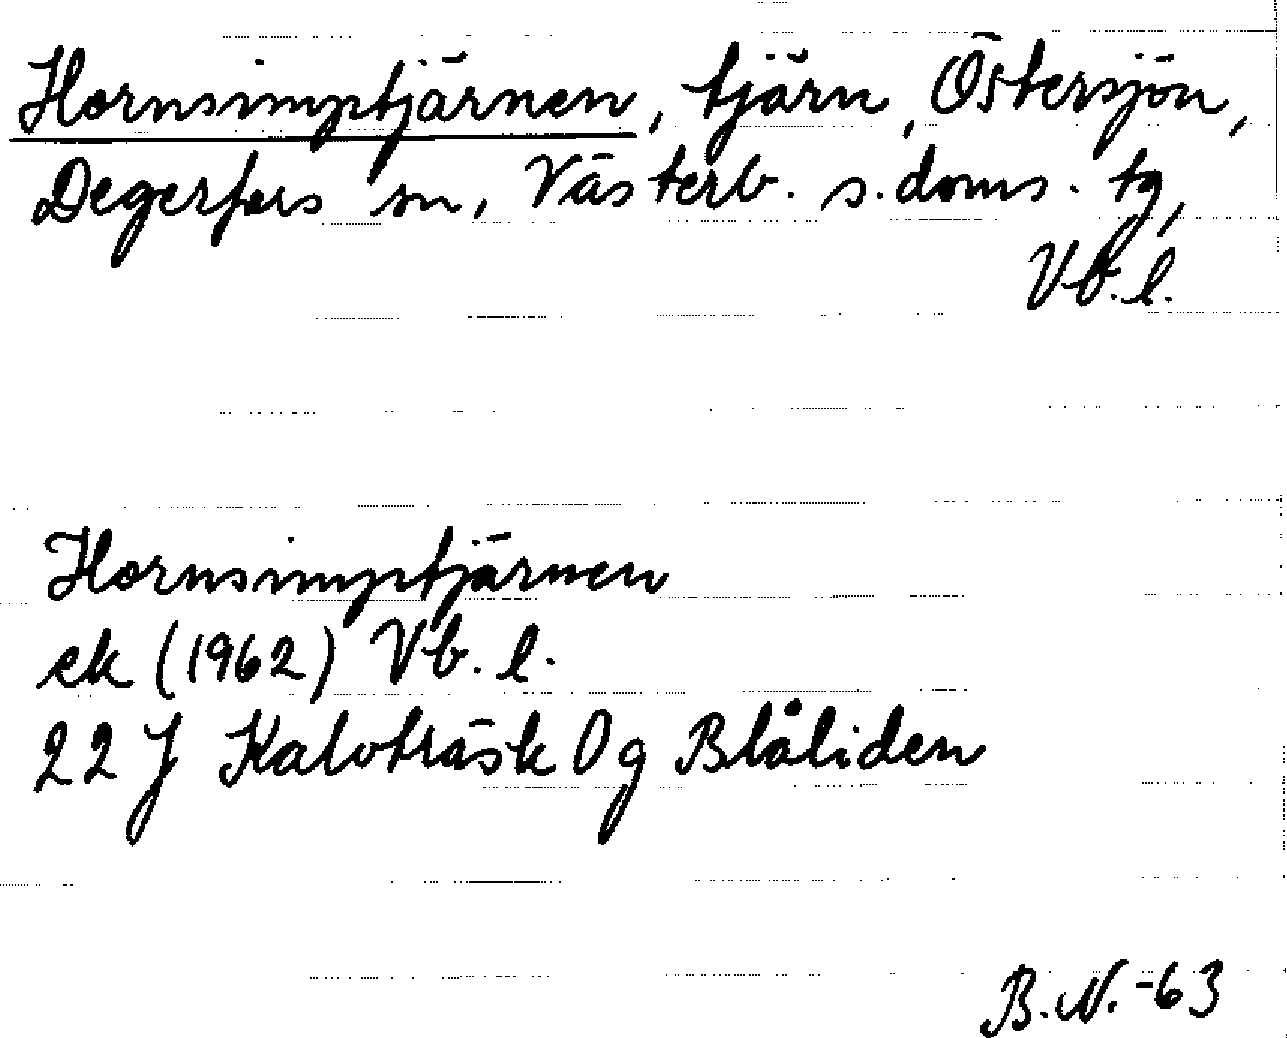 Hornsimptjärnen, tjärn, Östersjön,
Degerfors sn, Västerb. s. doms. tg,
Vb. l.
Hornsimptjärnen
ek (1962) Vb. l.
22 J Kalvträsk 0g Blåliden
B.N.-63